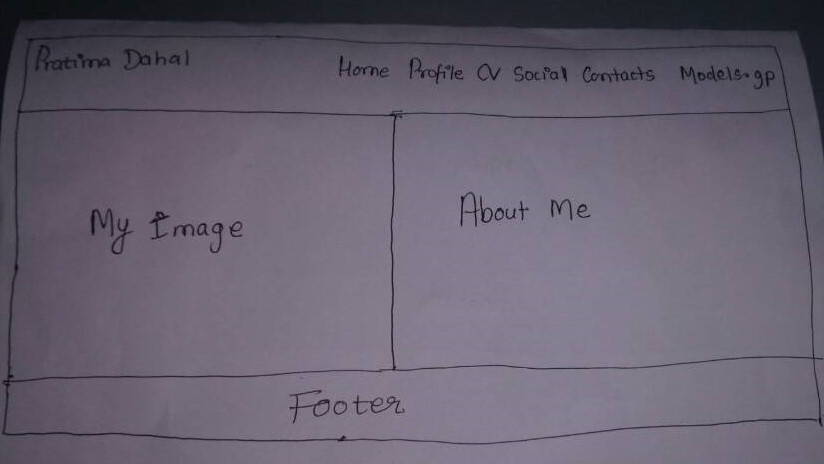 Pratima Dahal
Home Profile CV Social Contacts Models.gp
My Image
About Me
Footer